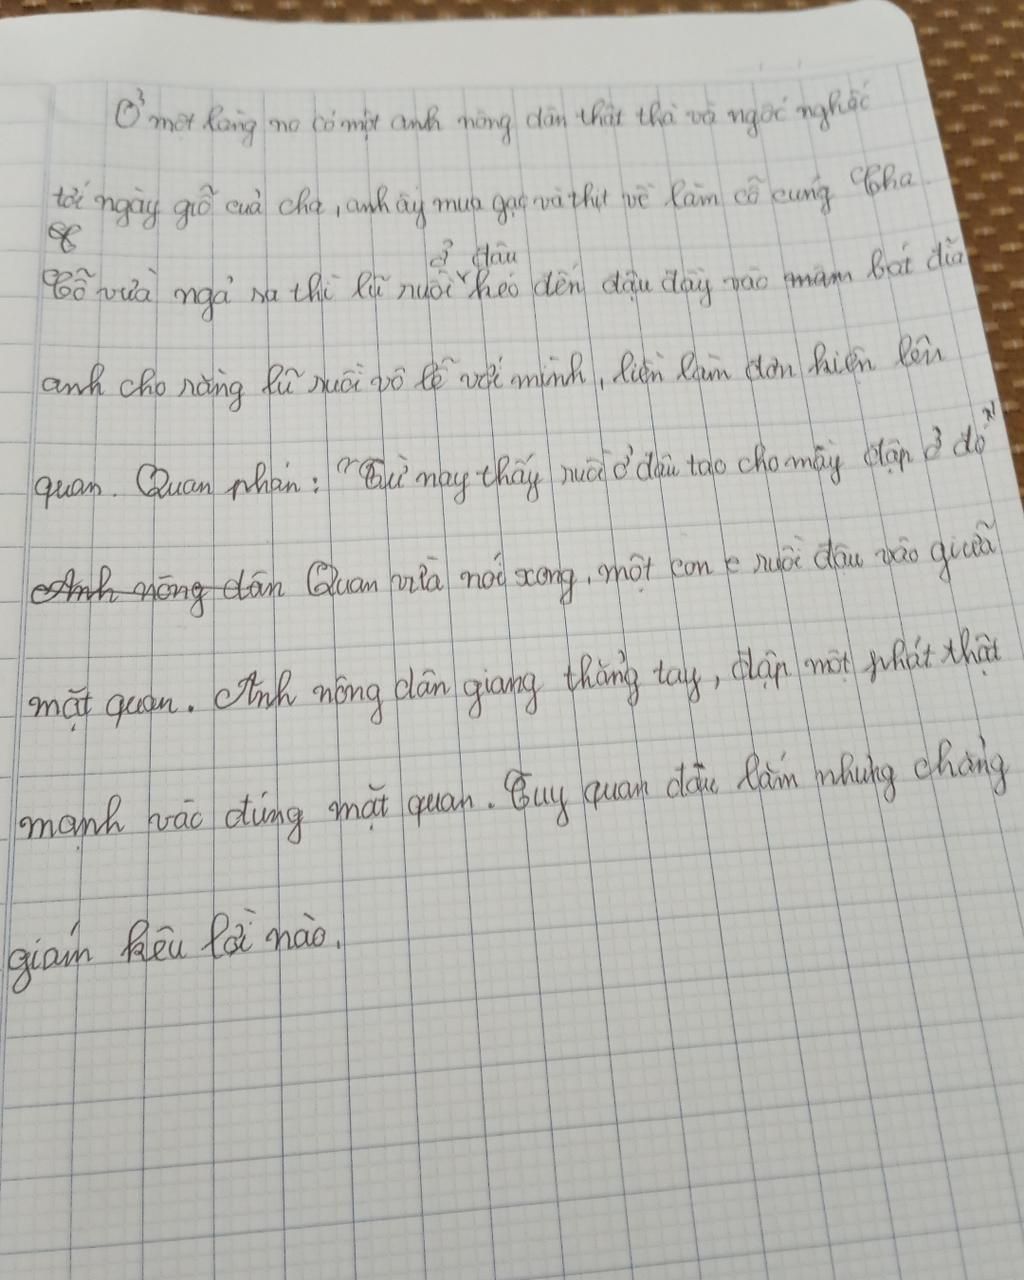 Ở một làng nọ có một anh nông dân thật thà và ngốc nghếc
tới ngày giỗ cuả cha, anh ấy mua gạo và thịt về làm cỗ cung cha
ở đâu
Cỗ vừa ngả ra thì lũ ruồi kéo đến đậu đầy vào mâm bát đĩa
anh cho rằng lũ ruồi vô lễ với mình, liền làm đơn kiện lên
quan. Quan phán: "Từ nay thấy ruồi ở đâu tao cho mày đập ở đó"
Anh nông dân Quan vừa nói xong, một con ruồi đâu vào giữa
mặt quan. Anh nông dân giang thẳng tay, đập một phát thật
mạnh vào đúng mặt quan. Tuy quan đâu lắm nhưng chẳng
giám kêu lời nào.